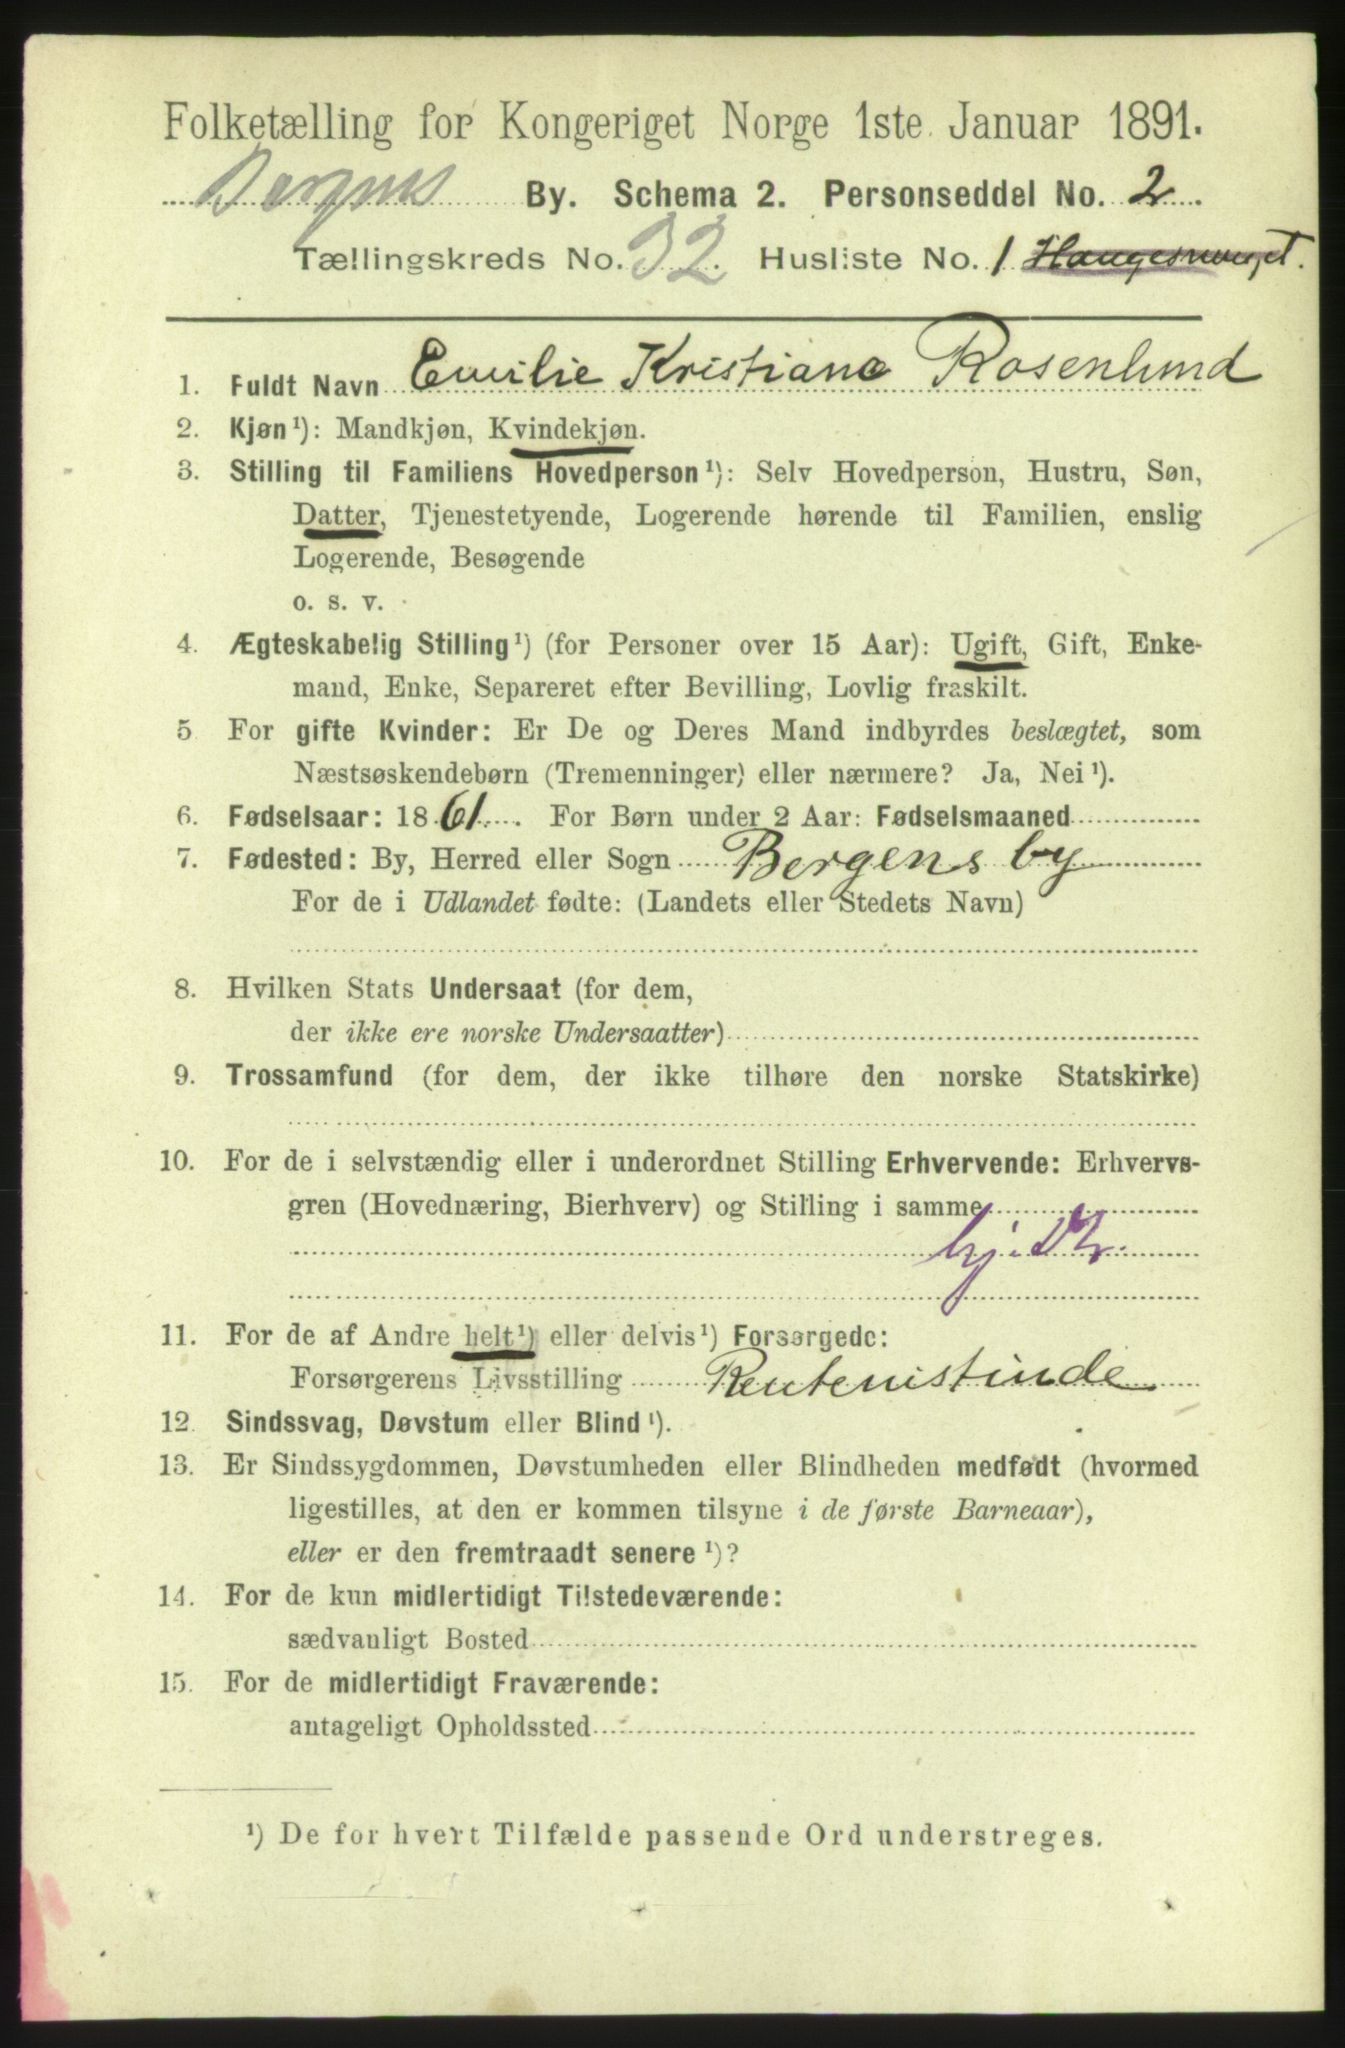 Folketælling for Kongeriget Norge 1ste Januar 1891.
Bergens By. Schema 2. Personseddel No. 2
Tællingskreds No. 32 Husliste No. 1
1. Fuldt Navn Emilie Kristiane Rosenlund
2. Kjøn¹): Mandkjøn, Kvindekjøn.
3. Stilling til Familiens Hovedperson¹): Selv Hovedperson, Hustru, Søn,
Datter, Tjenestetyende, Logerende hørende til Familien, enslig
Logerende, Besøgende
o. s. v.
4. Ægteskabelig Stilling¹) (for Personer over 15 Aar): Ugift, Gift, Enke-
mand, Enke, Separeret efter Bevilling, Lovlig fraskilt.
5 For gifte Kvinder: Er De og Deres Mand indbyrdes beslægtet, som
Næstsøskendebørn (Tremenninger) eller nærmere? Ja, Nei¹).
6. Fødselsaar: 1861. For Børn under 2 Aar: Fødselsmaaned
7. Fødested: By, Herred eller Sogn Bergens by
For de i Udlandet fødte: (Landets eller Stedets Navn)
8. Hvilken Stats Undersaat (for dem,
der ikke ere norske Undersaatter)
9. Trossamfund (for dem, der ikke tilhøre den norske Statskirke)
10. For de i selvstændig eller i underordnet Stilling Erhvervende: Erhvervs-
gren (Hovednæring, Bierhverv) og Stilling i samme
hj.
11. For de af Andre helt¹) eller delvis¹) Forsørgede:
Forsørgerens Livsstilling Rentenistinde
12. Sindssvag, Døvstum eller Blind¹).
13. Er Sindssygdommen, Døvstumheden eller Blindheden medfødt (hvormed
ligestilles, at den er kommen tilsyne i de første Barneaar),
eller er den fremtraadt senere¹)?
14. For de kun midlertidigt Tilstedeværende:
sædvanligt Bosted
15. For de midlertidigt Fraværende:
antageligt Opholdssted
¹) De for hvert Tilfælde passende Ord understreges.